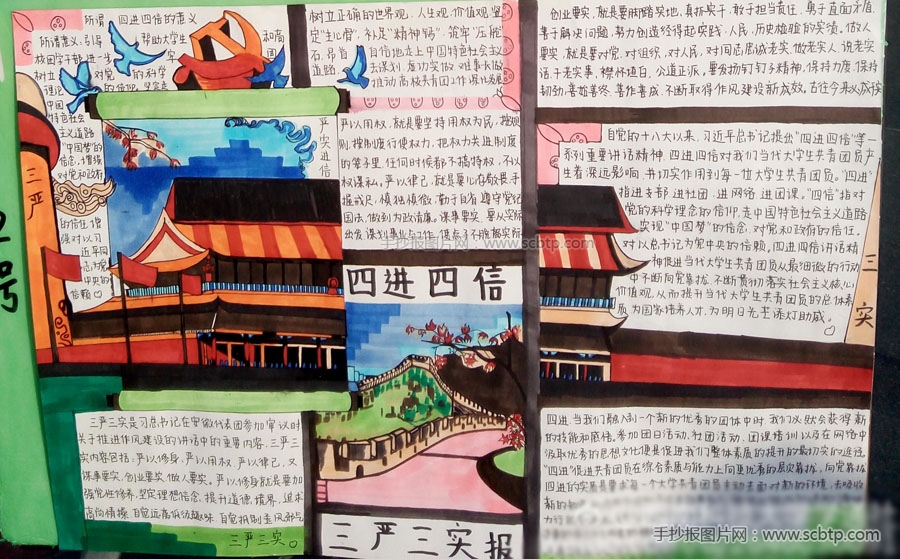 四进四信的意义
所谓意义,引导
帮助大学生
和高
校团学干部进一步
树立
对党
的科学
理论
中国
特色社会
主义道路
"中国梦"的
信念,增强
对党和政府
的信任,增
强对以习
近平同
志为党
中央的
信赖
树立正确的世界观、人生观、价值观,坚
定"主心骨",补足"精神钙",筑牢"压舱
石,昂首
自信地走上中国特色社会主义
道路
严以用权,就是要坚持用权为民,按规
则、按制度行使权力,把权力关进制度
的笼子里,任何时候都不搞特权、不以
权谋私。严以律己,就是要心存敬畏、手
握戒尺,慎独慎微、勤于自省,遵守党纪
国法,做到为政清廉。谋事要实,要从实际
出发谋划事业与工作,使点子不脱离实际
创业要实,就是要脚踏实地、真抓实干,敢于担当责任,勇于直面矛盾,
善于解决问题,努力创造经得起实践、人民、历史检验的实绩。做人
要实,就是要对党、对组织、对人民、对同志忠诚老实,做老实人、说老实
话、干老实事,襟怀坦白,公道正派,要发扬钉钉子精神,保持力度、保持
韧劲,善始善终、善作善成,不断取得作风建设新成效。
自党的十八大以来,习近平总书记提出"四进四信"等一
系列重要讲话精神。四进四信对我们当代大学生共青团员产
生着深远影响,并切实作用到每一位大学生共青团员。"四进"
指进支部、进社团、进网络、进团课。"四信"指对
党的科学理念的信仰,走中国特色社会主义道路
实现"中国梦"的信念,对党和政府的信任,
对以总书记为党中央的信赖。四进四信讲话精
神促进当代大学生共青团员从最细微的行动
中不断向党靠拢,不断贯彻落实社会主义核心
价值观,从而提升当代大学生共青团员的总体素
质,为国家培养人才,为明日光芒添灯助威。
三严
严实进信
三
实
号
四进四信
三严三实报
三严三实是习总书记在安徽代表团参加审议时
关于推进作风建设的讲话中的重要内容,三严三
实内容包括:严以修身、严以用权、严以律己,又
谋事要实、创业要实、做人要实。严以修身就是要加
强党性修养,坚定理想信念,提升道德境界,追求
高尚情操,自觉远离低级趣味,自觉抵制歪风邪气
三严三实。
四进当我们融入到一个新的优秀的团体中时,我们必然会获得新
的技能和感悟。参加团日活动、社团活动、团课培训以及在网络中
"四进"促进共青团员在综合素质与能力上向更优秀的层次靠拢,向党靠拢
手抄报图片网:www.scbtp.com
手抄报图片网:www.scbtp.com